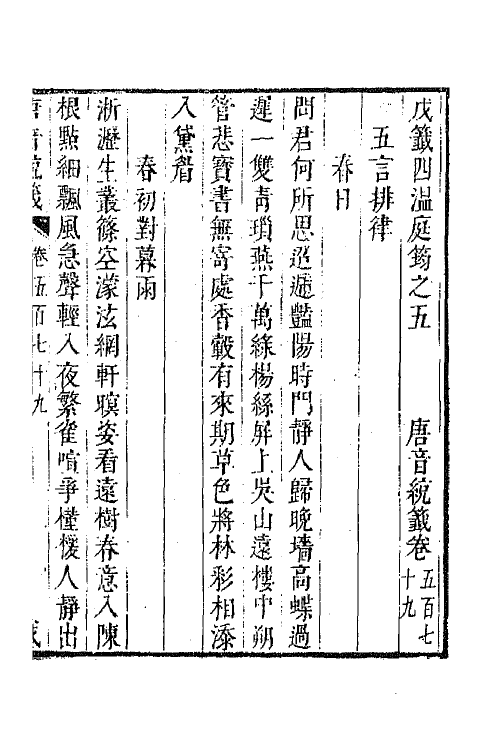 戊籤四溫庭筠之五　唐音統籤卷五百七十九
五言排律
春日
問君何所思迢遞豔陽時門靜人歸晚墻高蝶過
遲一雙青瑣燕千萬綠楊絲屏上吳山遠樓中朔
管悲寶書無寄處香轂有來期草色將林彩相添
入黛眉
春初對暮雨
淅瀝生叢篠空濛泫網軒暝姿看遠樹春意入陳
根點細飄風急聲輕入夜繁雀喧爭槿援人靜出
唐音統籤　卷五百七十九